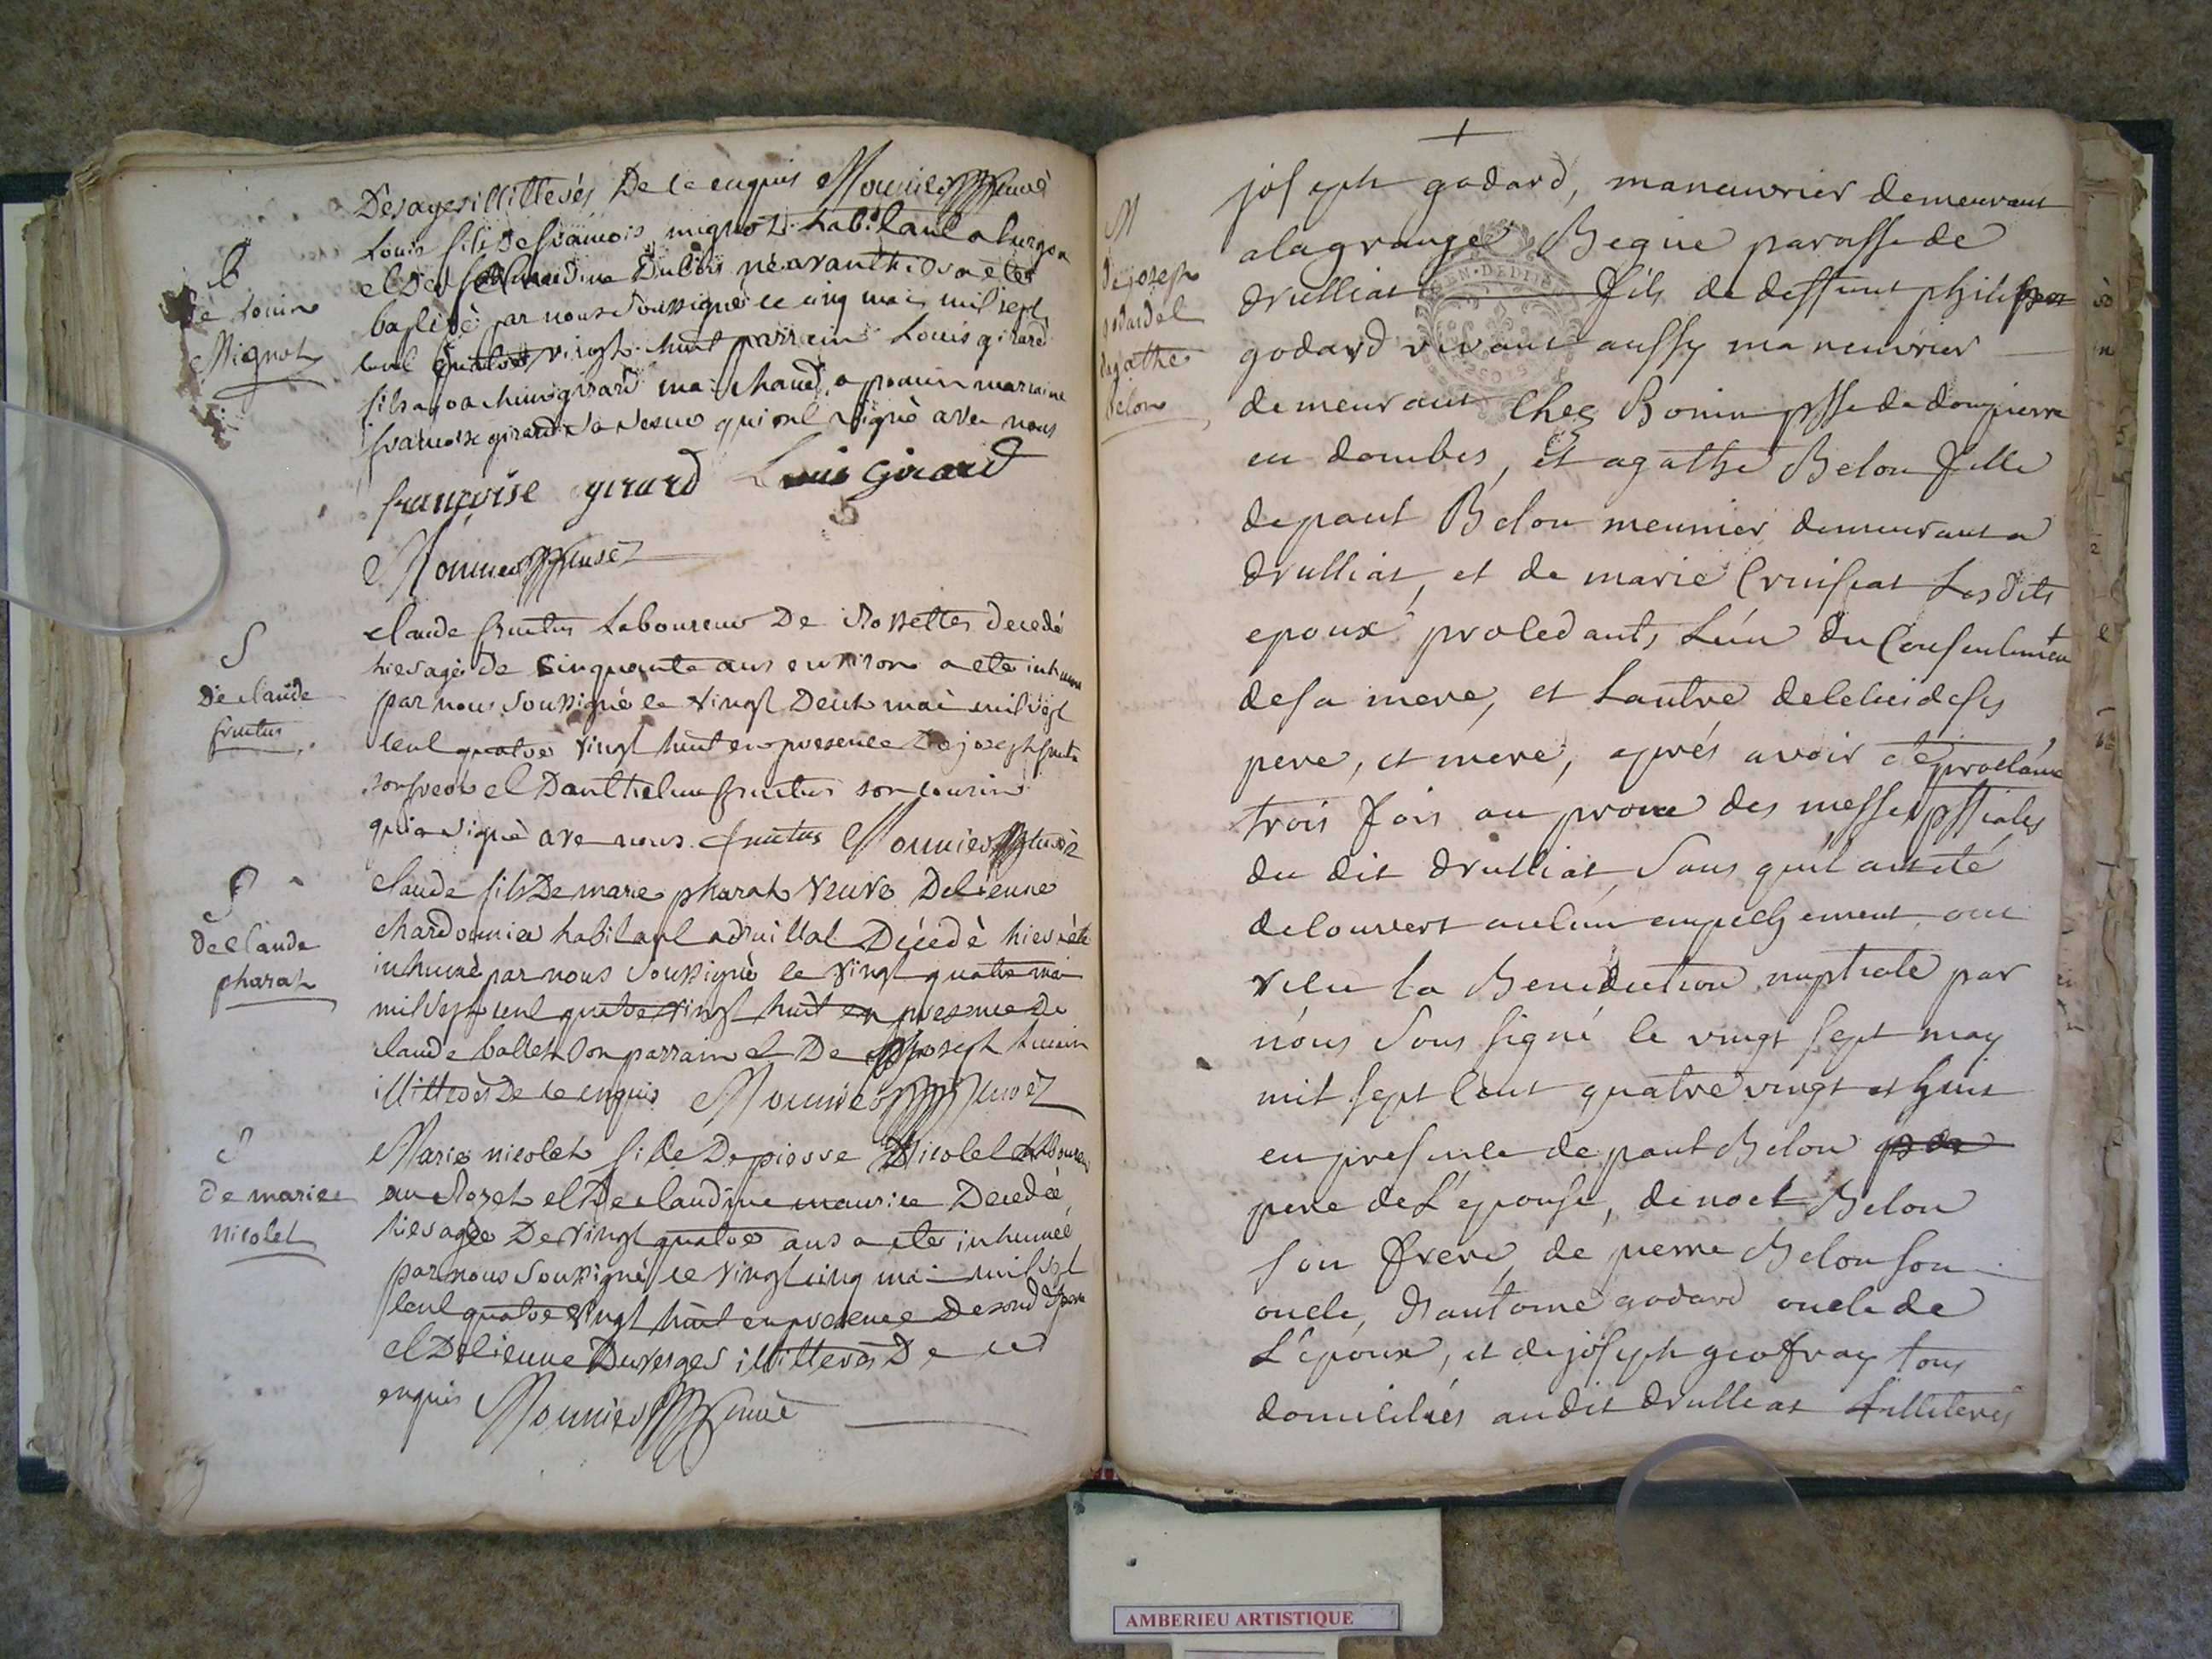 Desages illitterés De ce enquis Mounier curé
B
de Louis
Mignot
Louis fils De francois mignot habitant a
et De Claudine Dubois né avanthier a eté
baptisé par nous soussigné le cinq mai mil sept
cent quatre vingt huit parrain Louis girard
fils a joachim girard marchand a marraine
francoise girard sa soeur qui ont signé avec nous
françoise girard Louis Girard
Mounier curé
S
De claude
fructus
claude fructus Laboureur De Rossettes decedé
hier agé de cinquante ans environ a eté inhumé
par nous soussigné le vingt Deux mai mil sept
cent quatre vingt huit en presence De joseph
son frere et Danthelme fructus son cousin
qui a signé avec nous fructus Mounier curé
S
de Claude
pharat
claude fils De marie pharat veuve Detienne
chardonnier habitant a druillat Décédé hier a eté
inhumé par nous soussigné le vingt quatre mai
mil sept cent quatre vingt huit en presence De
claude ballet son parrain et De joseph
illitterés De ce enquis Mounier curé
S
de marie
nicolet
Marie nicolet fille De pierre Nicolet
au et De claudine maurice Decedée
hier agée De vingt quatre ans a eté inhumée
par nous soussigné le vingt cinq mai mil sept
cent quatre vingt huit en presence De sond. pere
et Detienne Duverger illitterés De ce
enquis Mounier curé
M
de joseph
godard et
dagathe
belon
joseph godard, maneuvrier demeurant
a la grange Begue paroisse de
drulliat fils de deffunt philippes
godard vivant aussy maneuvrier
demeurant chez Bonin psse de dompierre
en dombes, et agathe Belon fille
de paul Belon meunier demeurant a
drulliat, et de marie Cruisiat Lesdits
epoux procedants, L'un du Consentement
de sa mere, et Lautre de celui de ses
pere, et mere, aprés avoir été proclamé
trois fois au prone des messes pssiales
du dit drulliat, sans quil ait été
decouvert aucun empechement, ont
recu la Benediction nuptiale par
nous sous signé le vingt sept may
mil sept cent quatre vingt et huit
en presence de paul Belon
pere de L'epouse, de noel Belon
son frere, de pierre Belon son
oncle, d'antoine godard oncle de
L'epoux, et de joseph geofray tous
domiciliés audit drulliat illiterés
AMBERIEU ARTISTIQUE